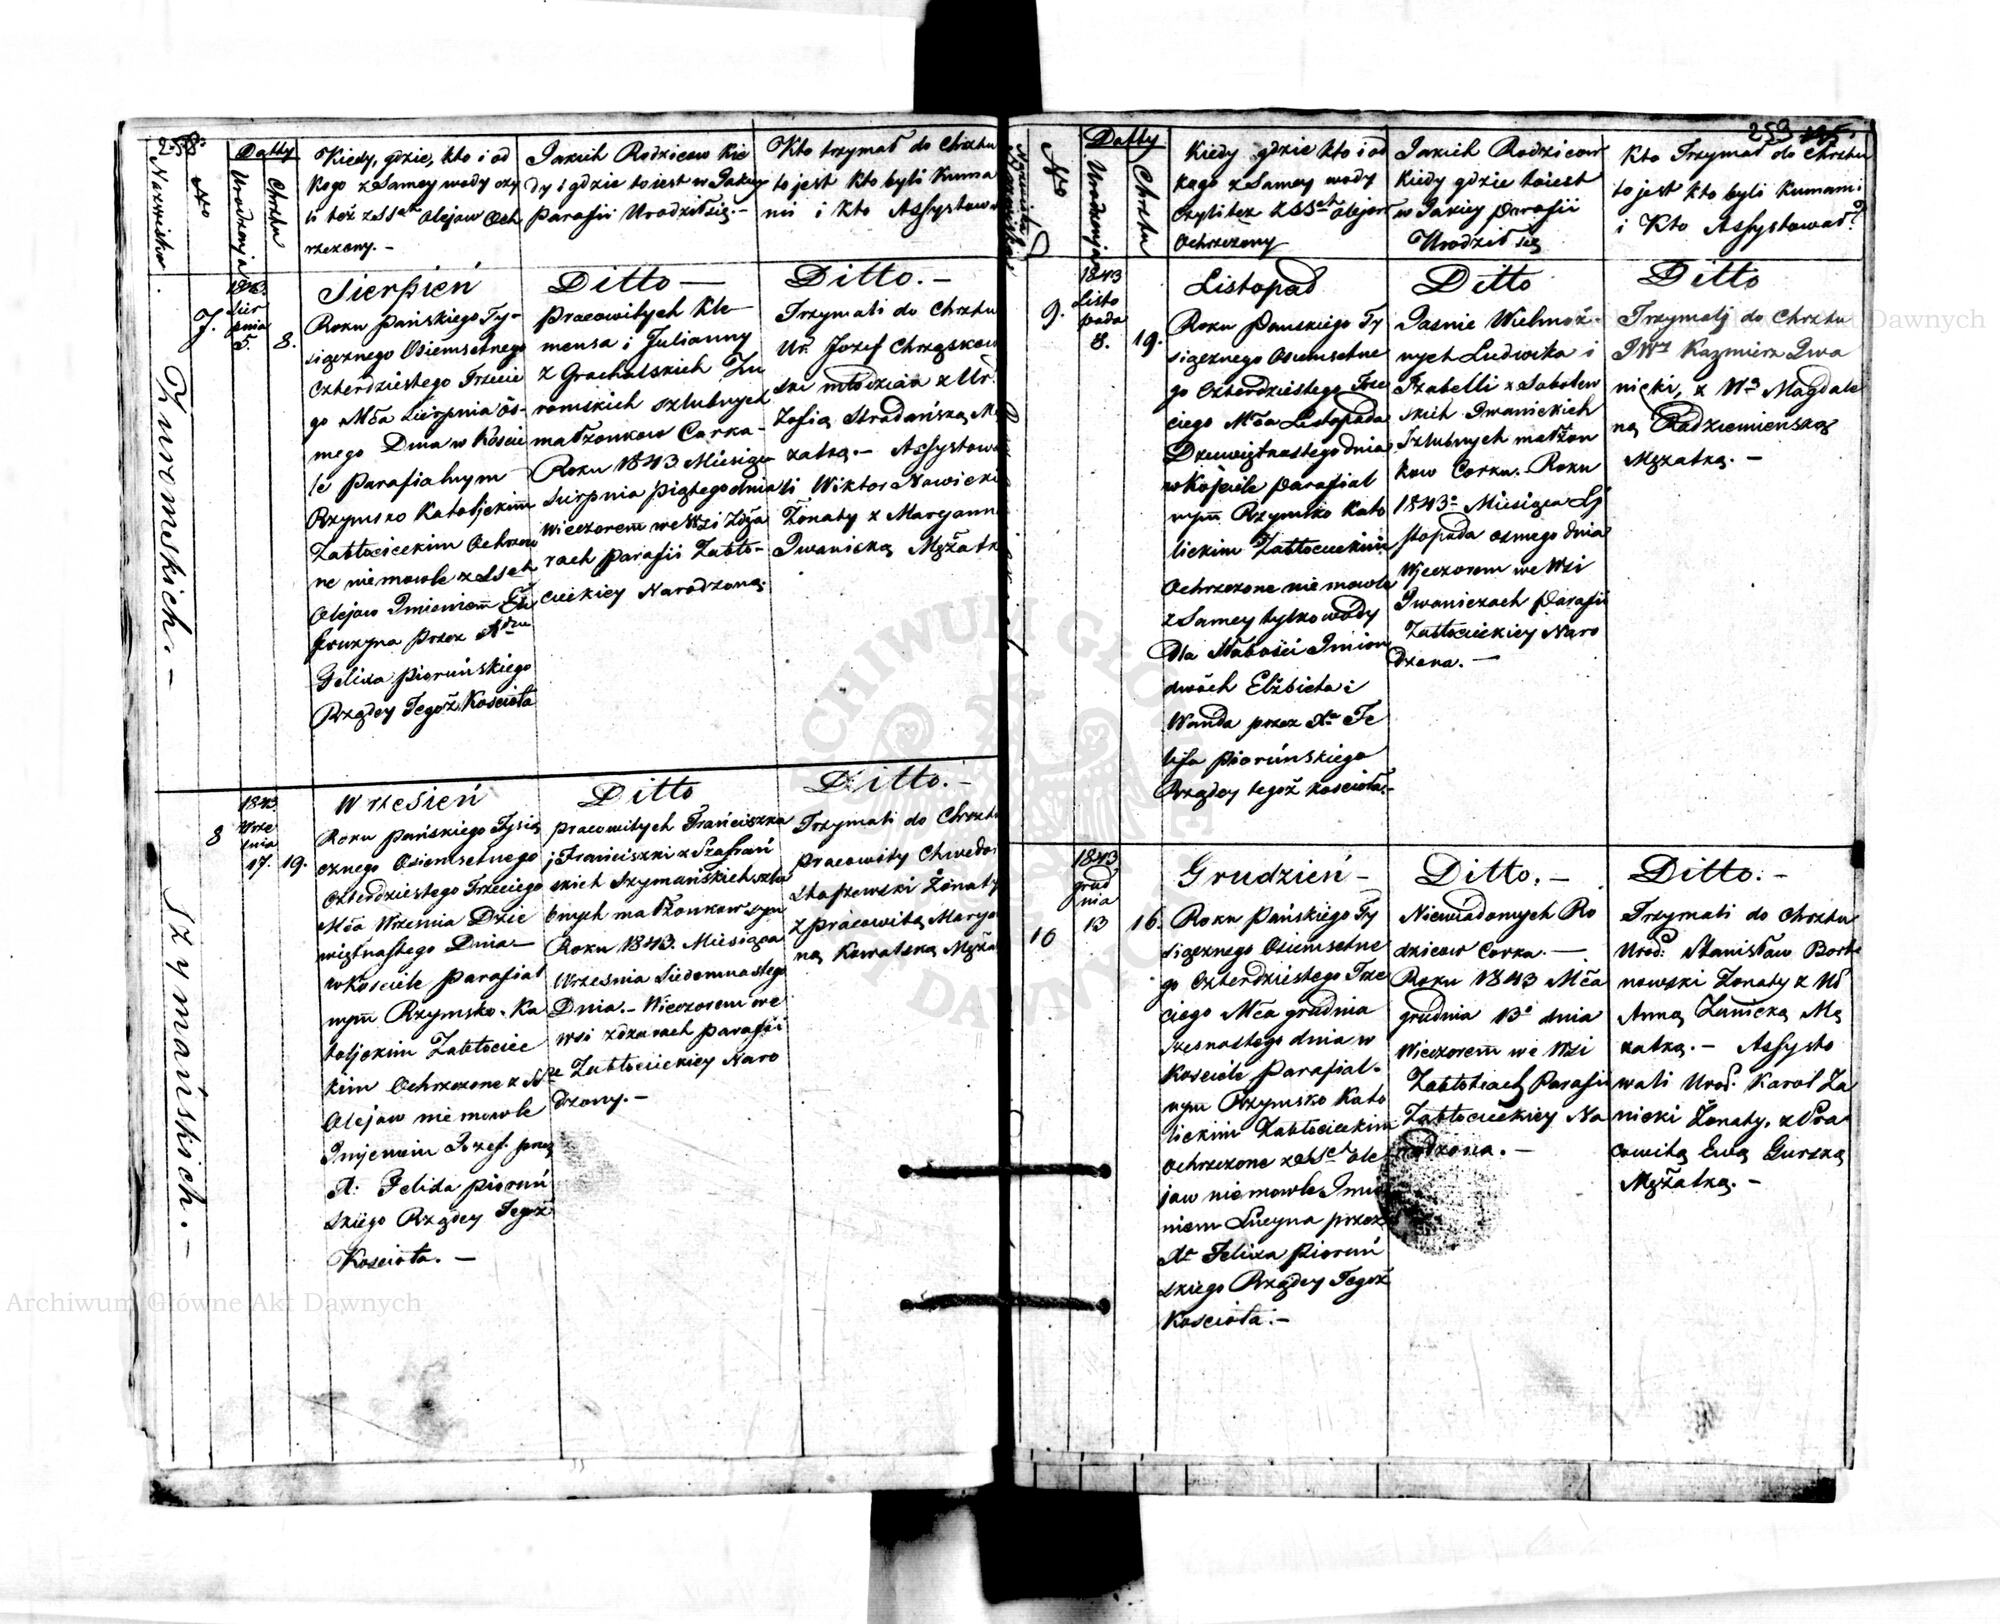 258.
Nazwisko
No
Datty
Urodzenja
Chrztu
Kiedy, gdzie, kto i od
kogo z Samey wody czy
li też z SSch olejow Och
rzczony. -
Jakich Rodzicow Kie
dy i gdzie to iest w Jakiey
Parafii Urodził się. -
Kto trzymał do Chrztu
to jest kto byli Kuma
mi i kto Assystow
Żuromskich. -
7.
1843.
Sier
pnia
5.
8.
Sierpień
Roku Pańskiego Ty-
siącznego Osiemsetnego
Czterdziestego Trzecie
go Mca Sierpnia ós-
mego Dnia w Koscie
le Parafialnym
Rzymsko Katolickim
Zabłocieckim Ochrzczo
ne niemowle z SSch
Olejow Jmieniem
przez
Felixa Pioruńskiego
Rządcy Tegoż Kościoła
Ditto -
Pracowitych Kle-
mensa i Julianny
z Grochalskich Żu
romskich szlubnych
małżonkow Corka -
Roku 1843 Miesiąca
Sierpnia piątego dnia
wieczorem we Wsi Zdża
rach parafii Zabło-
cieckiey Narodzona.
Ditto. -
Trzymali do Chrztu
Ur. Jozef Chrząskow
ski młodzian z Ur.
Zofią Stradańską Mę
zatką. - Assystowa
li Wiktor Nowicki
Żonaty z Maryann
Jwanicką Mężatk
Szymańskich. -
8
1843
Wrze
śnia
17.
19.
Wrzesień
Roku Pańskiego Tysią
cznego Osiemsetnego
Czterdziestego Trzeciego
Mca Wrzesnia Dzie
więtnastego Dnia -
w Kosciele Parafial
nym Rzymsko - Ka
tolickim Zabłociec
kim Ochrzczone z
Olejow niemowle
Jmjeniem Jozef przez
X. Felixa pioruń
skiego Rządcy Tegoż
Kościoła. -
Ditto
pracowitych Franciszka
j Franciszki z Szafrań
skich Szymańskich szlu
bnych małżonkow syn
Roku 1843. Miesiąca
Września Siedemnastego
Dnia. - Wieczorem we
wsi Zdżarach parafii
Zabłocieckiey Naro
dzony. -
Ditto. -
Trzymali do Chrztu
Pracowity Chwedo
Żonaty
z pracowitą Marya
ną Kowalską Męża
259
No
Datty
Urodzenja
Chrztu
Kiedy gdzie kto i od
kogo z Samey wody
Czyli też z SSch olejow
Ochrzczony
Jakich Rodzicow
Kiedy gdzie toiest
w Jakiey Parafii
Urodził się
Kto Trzymał do Chrztu
to jest kto byli Kumami
i Kto Assystował?
9.
1843
Listo
pada
8.
19.
Listopad
Roku Pańskiego Ty
siącznego osiemsetne
go Czterdziestego Trze
ciego Mca Listopada
Dziewiętnastego dnia
w Kościele Parafial
nym Rzymsko Kato
lickim Zabłocieckim
Ochrzczone niemowle
z Samey tylko wody
Dla słabości Jmion
dwóch Elżbieta i
Wanda przez Xa Fe
lixa Pioruńskiego
Rządcy tegoż kościoła. -
Ditto
Jasnie Wielmoż-
nych Ludwika i
Jzabelli z Sobolew
skich Jwanickich
Szlubnych małżon
kow Corka. Roku
1843o Miesiąca Lj
stopada osmego dnia
wjeczorem we Wsi
Jwaniczach Parafii
Zabłocieckiey Naro
dzona. -
Ditto
Trzymalj do Chrztu
JWy Kazmierz Jwa
nicki, z Wa Magdale
ną Radziemieńską
Mężatką. -
10
1843
grud
nia
13
16.
Grudzień -
Roku Pańskiego Ty
siącznego Osiemsetne
go Czterdziestego Trze
ciego Mca grudnia
szesnastego dnia w
kosciele Parafial-
nym Rzymsko Kato
lickim Zabłocieckim
Ochrzczone z SSch ole
jow niemowle Jmie
niem Lucyna przez
Xa Felixa Pioruń
skiego Rządcy Tegoż
Kościoła. -
Ditto. -
Niewiadomych Ro
dzicow Corka. -
Roku 1843 Mca
grudnia 13o dnia
Wieczorem we Wsi
Zabłotcach Parafii
Zabłocieckiey Na
rodzona. -
Ditto. -
Trzymali do Chrztu
Urod: Stanisław Bort
nowski Żonaty z Ur
Anną Zanicką Mę
zatką. - Assysto
wali Urod: Karol Za
nicki Żonaty, z Pra
cowitą Ewą Gurską
Mężatką. -
Archiwum Główne Akt Dawnych
ARCHIWUM GŁÓWNE AKT DAWNYCH